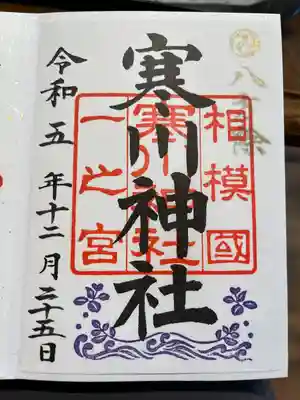 八方除
相模國
寒川神社
一之宮
寒川神社
令和五年十二月二十五日